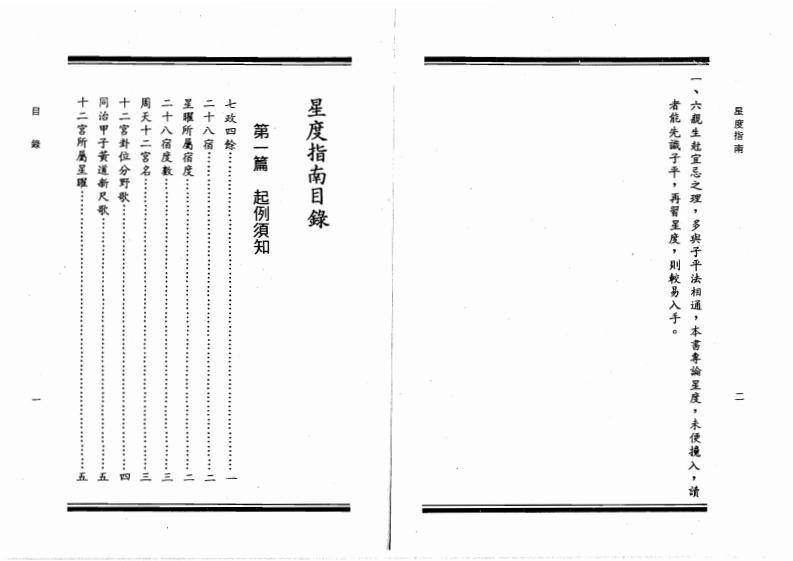 星度指南
二
一、六親生尅宜忌之理，多與子平法相通，本書專論星度，未便攙入，讀
者能先識子平，再習星度，則較易入手。
星度指南目錄
第一篇　起例須知
七政四餘…………一
二十八宿…………二
星曜所屬宿度…………二
二十八宿度數…………三
周天十二宮名…………三
十二宮卦位分野歌…………四
同治甲子黃道新尺歌…………五
十二宮所屬星曜…………五
目錄
一